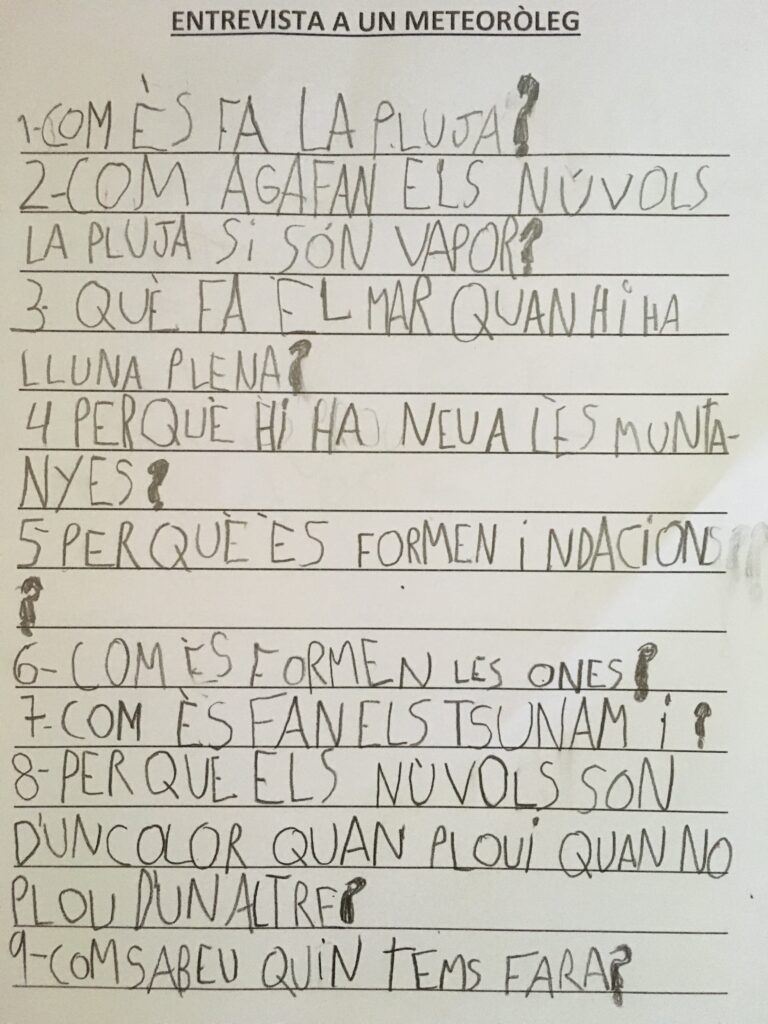 ENTREVISTA A UN METEORÒLEG
1-COM ÈS FA LA PLUJA?
2-COM AGAFAN ELS NÚVOLS
LA PLUJA SI SÓN VAPOR?
3- QUÈ FA EL MAR QUAN HI HA
LLUNA PLENA?
4 PERQUÈ HI HA NEU A LES MUNTA-
NYES?
5 PERQUÈ ES FORMEN INDACIONS
?
6- COM ÈS FORMEN LES ONES?
7-COM ÈS FAN ELS TSUNAMI?
8-PER QUE ELS NÙVOLS SON
D'UN COLOR QUAN PLOU I QUAN NO
PLOU D'UN ALTRE?
9-COM SABEU QUIN TEMS FARA?